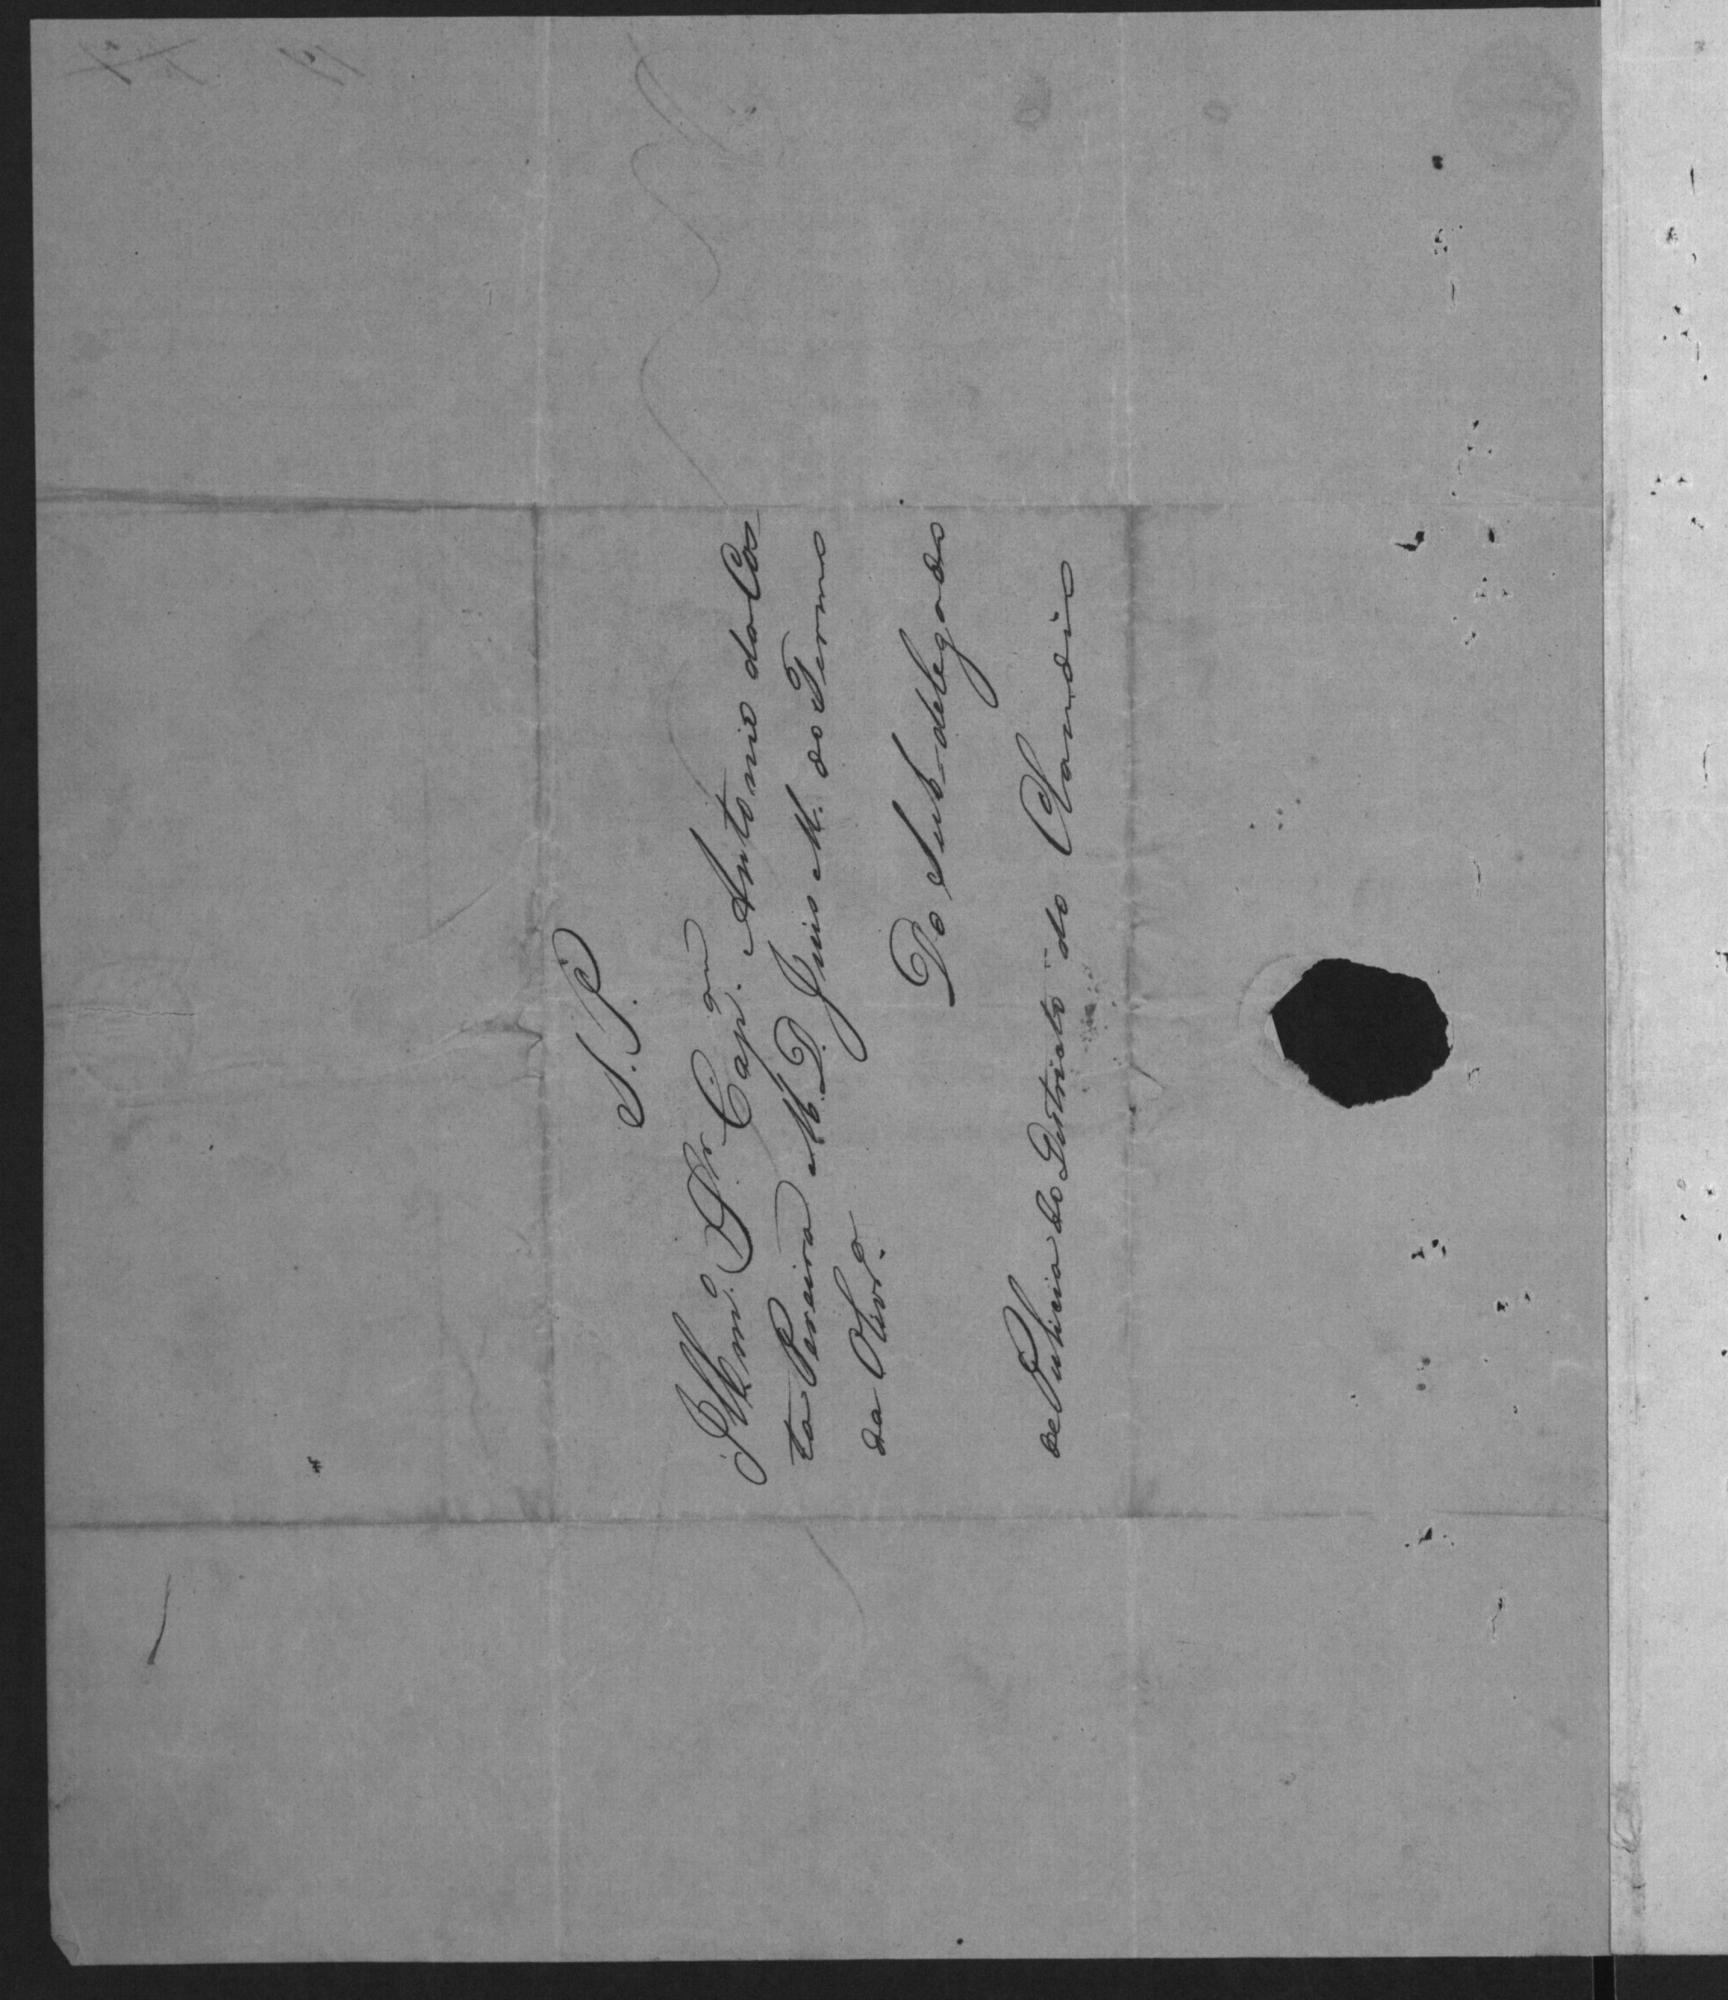 S. P.
Illmo. Snr. Capam. Antonio da Cos-
ta Pereira M. D. Juis M. do Termo
da Olivra.
Do Sub-delegado
de Pulicia do Destricto do Claudio